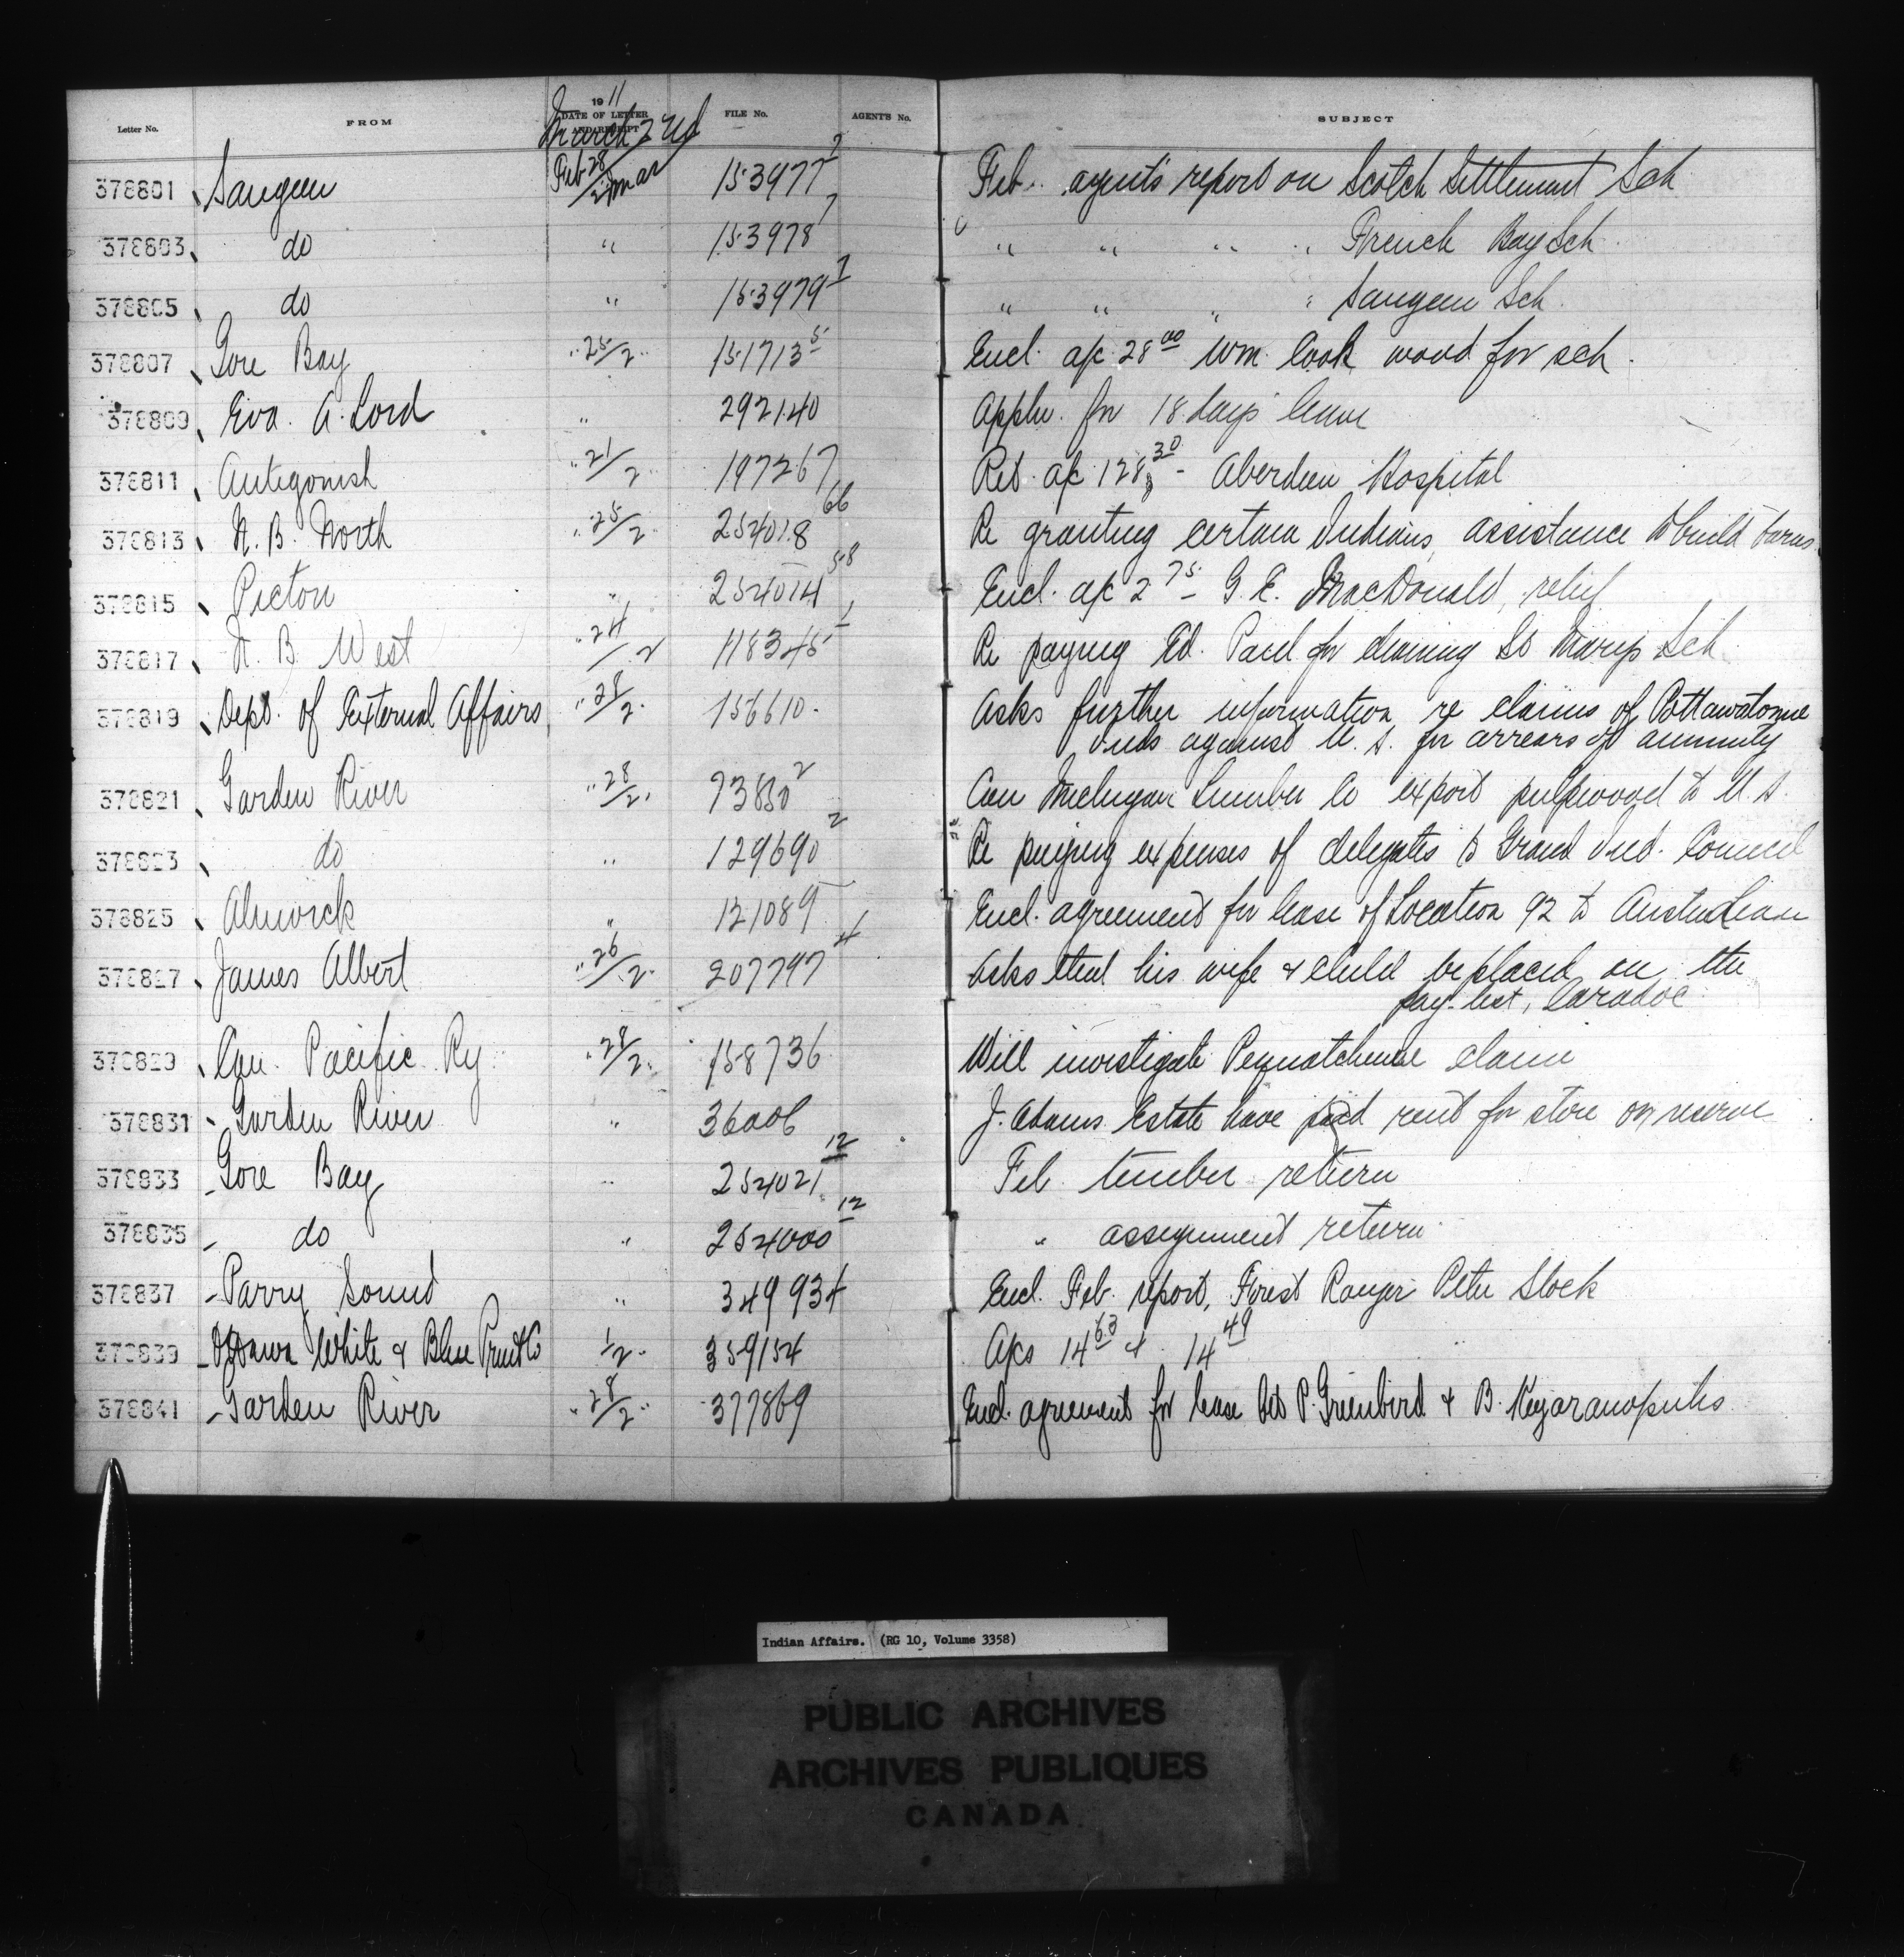 Letter No. FROM 1911 DATE OF LETTER AND RECEIPT FILE No. AGENT'S No. SUBJECT
March 2nd
378801 Saugeen Feb 28/2 Mar 153977 2 Feb. agent's report on Scotch Settlement Sch
378803 do " 153978 7 " " " " French Bay Sch
378805 do " 153979 2 " " " " Saugeen Sch.
378807 Gore Bay " 25/2 " 151713 5 Encl. a/c 28 00 Wm. Cook wood for sch.
378809 Eva. A. Lord " 292140 Appln. for 18 days leave
378811 Antigonish " 21/2 " 197267 Ret. a/c 128 30 - Aberdeen Hospital
378813 N. B. North " 25/2 " 254018 66 Re granting certain Indians assistance to build barns
378815 Picton " 254014 58 Encl. a/c 2 75 - G. E. MacDonald, relief
378817 N. B. West " 24/2 118345 1 Re paying Ed. Paul for cleaning St Marys Sch.
378819 Dept. of External Affairs " 28/2 " 156610 Asks further information re claims of Pottawatomie
Inds against U. S. for arrears of annuity
378821 Garden River " 28/2 " 73850 2 Can Michigan Lumber Co export pulpwood to U. S.
378823 do " 129690 2 Re paying expenses of delegates to Grand Ind. Council
378825 Alnwick " 121089 Encl. agreement for lease of Location 92 to
378827 James Albert " 26/2 " 207797 4 Asks that his wife & child be placed on the
pay-list, Caradoc
378829 Can. Pacific Ry " 28/2 " 158736 Will investigate claim
378831 Garden River " 36006 J. Adams Estate have paid rent for store on reserve
378833 Gore Bay " 254021 12 Feb timber return
378835 do " 254000 12 " assignment return
378837 Parry Sound " 349934 Encl. Feb. report, Forest Ranger Peter Stock
378839 Ottawa White & Blue Print Co 1/2 " 359154 A/cs 14 63 & 14 49
378841 Garden River " 28/2 " 377869 Encl. agreement for lease bet P. Greenbird & B.
Indian Affairs. (RG 10, Volume 3358)
PUBLIC ARCHIVES
ARCHIVES PUBLIQUES
CANADA